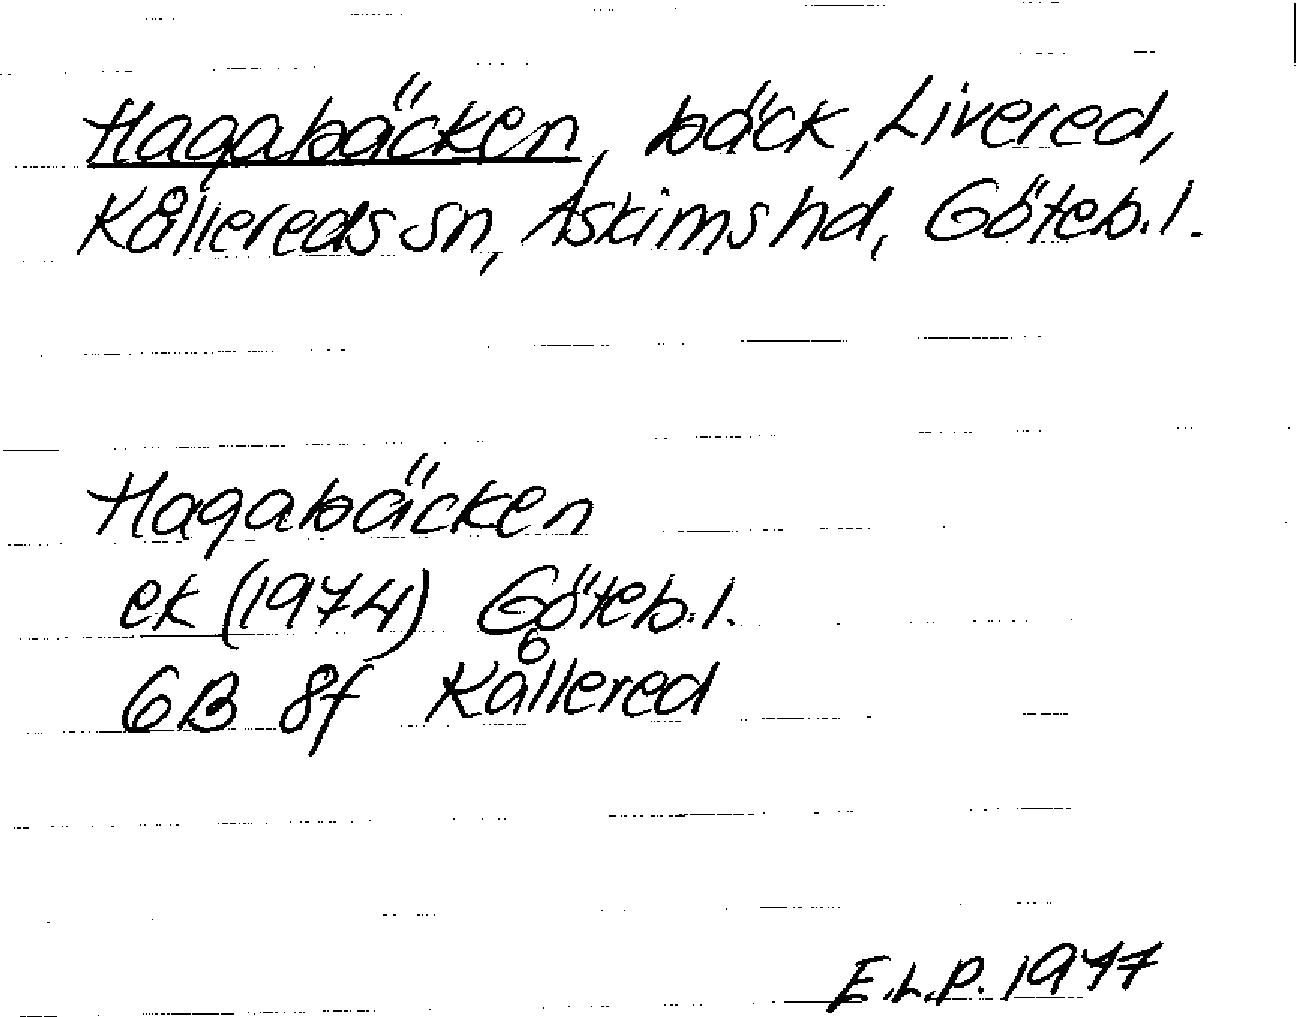 Hagabäcken, bäck, Livered,
Kållereds sn, Askims hd, Göteb. l.
Hagabäcken
ek (1974) Göteb. l.
6B 8f Kållered
E.L.P. 1977